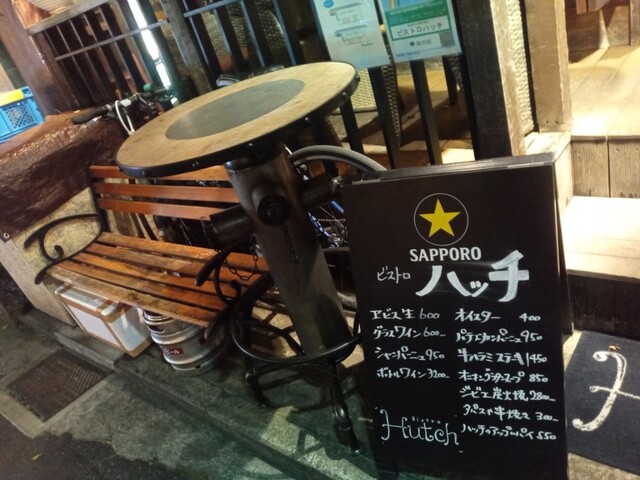 ビストロハッチ
SAPPORO
ビストロ
ハッチ
ヱビス生 600
グラスワイン 600
シャンパーニュ 950
ボトルワイン 3200
オイスター 400
パテドカンパーニュ 950
牛ハラミステーキ 1450
オニオングラタンスープ 850
ジビエ炭火焼 2800
タパスや串焼き 300
ハッチのアップルパイ 550
Bistro
Hutch